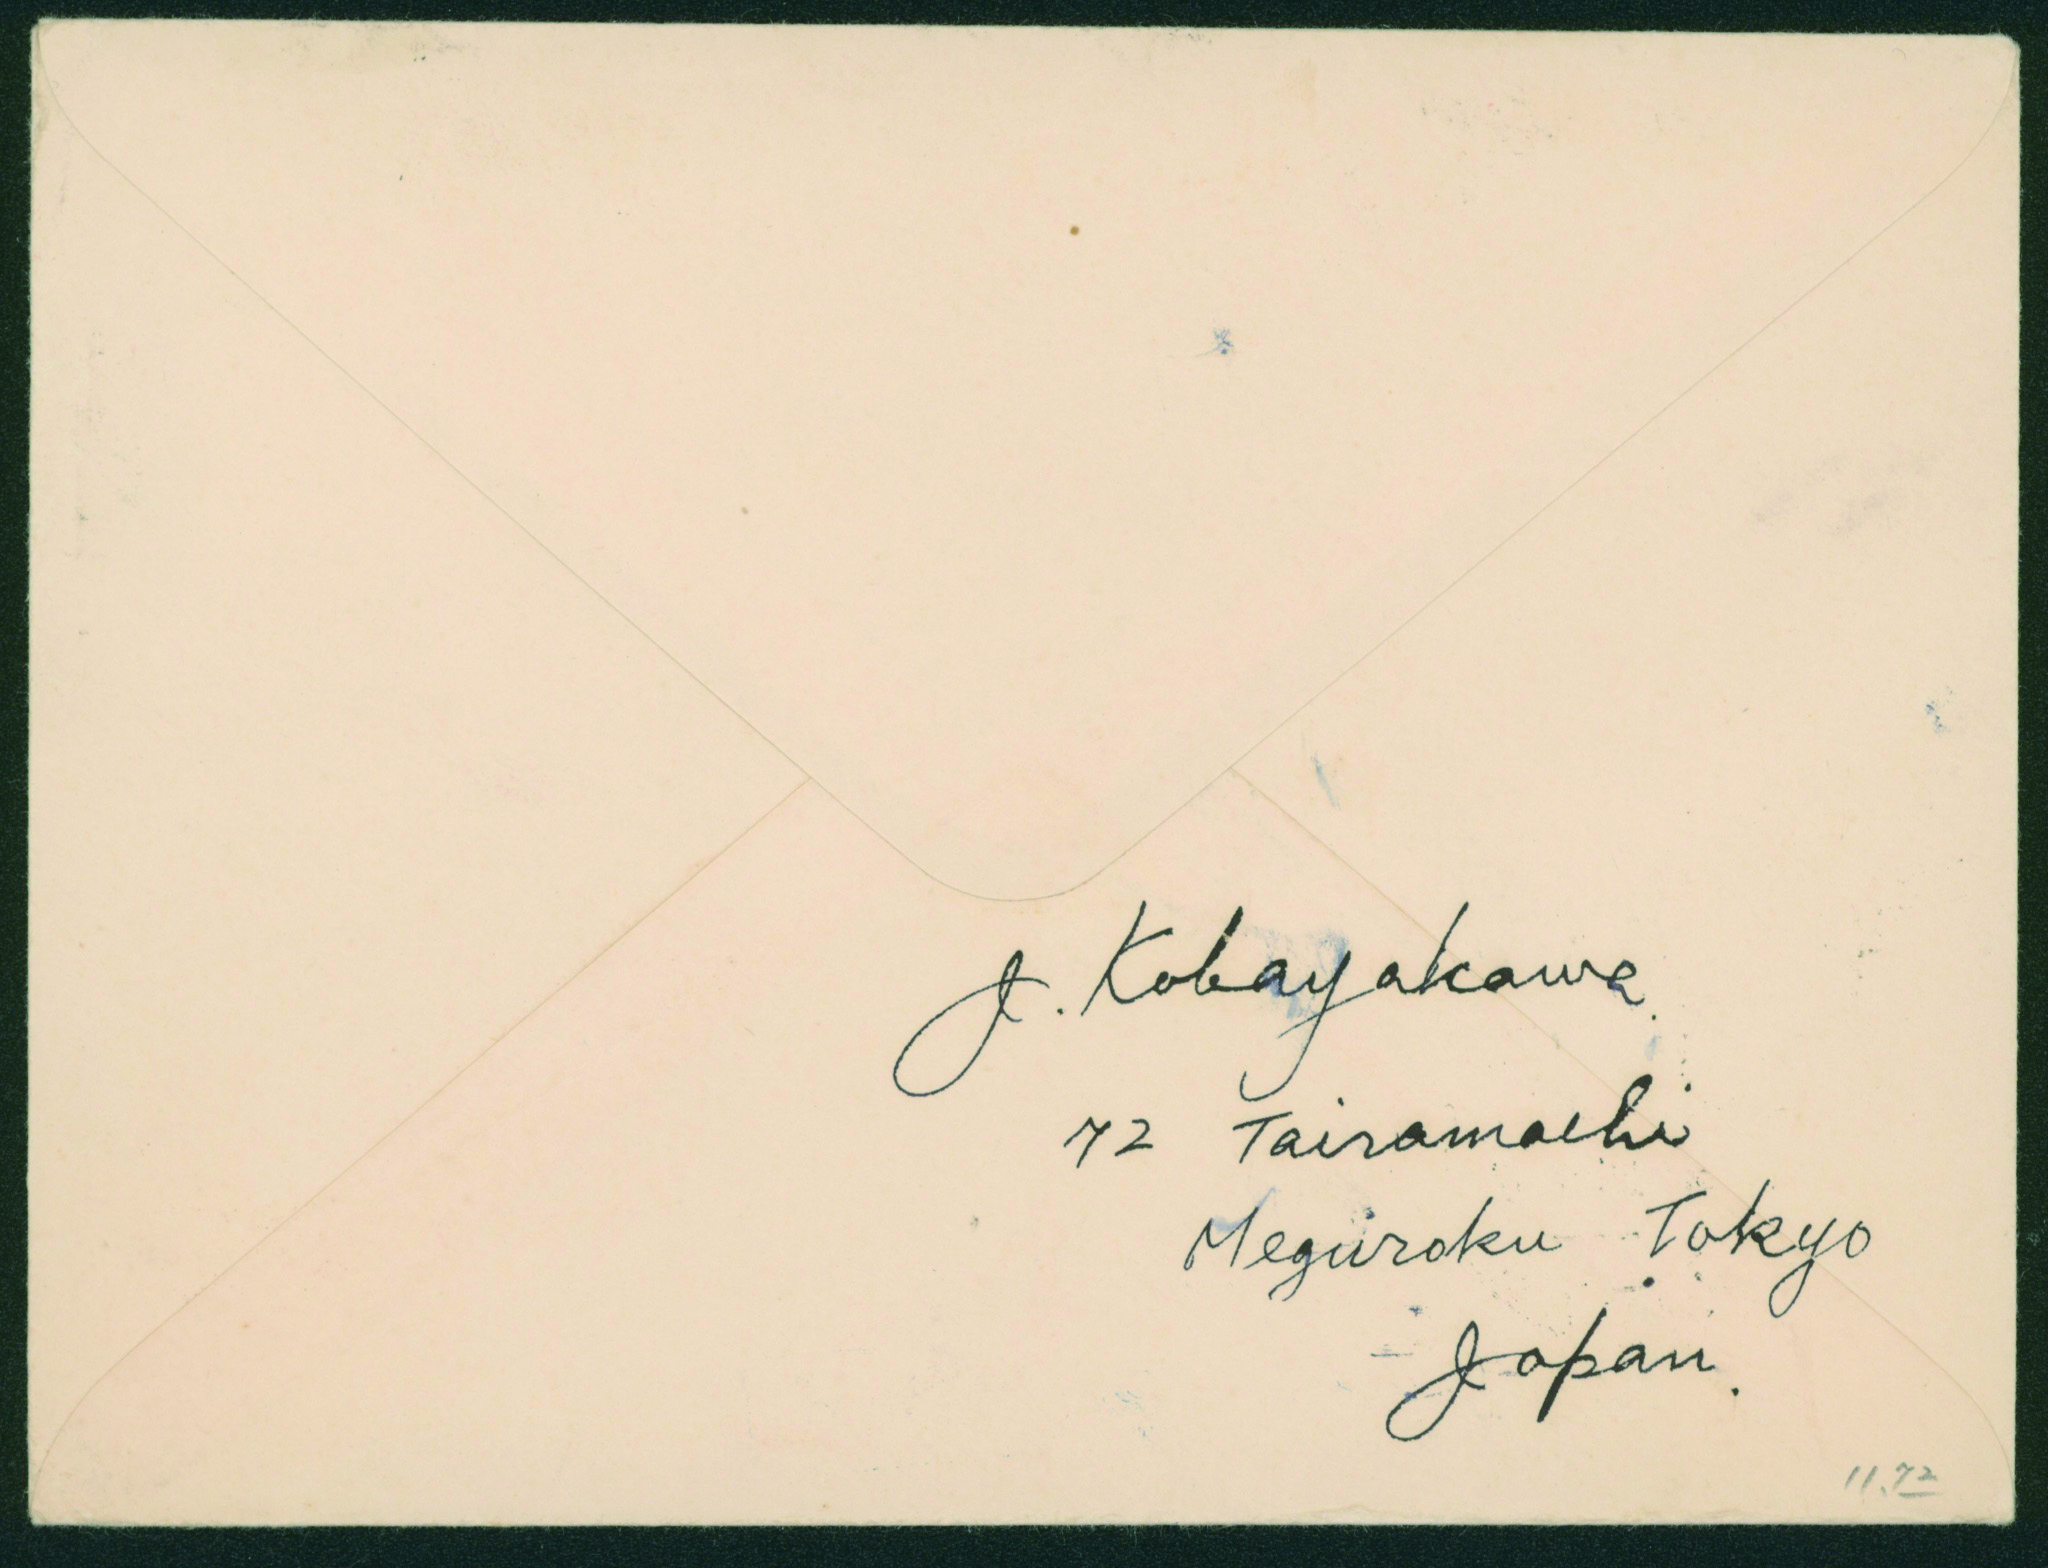 J. Kobayakawa.
72 Tairamachi
Meguroku Tokyo
Japan.
11.72